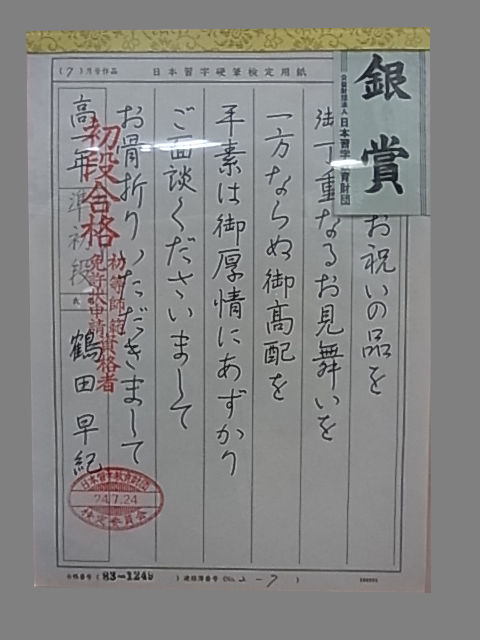 (7)月号作品
日本習字硬筆検定用紙
銀賞
公益財団法人 日本習字教育財団
お祝いの品を
御丁重なるお見舞いを
一方ならぬ御高配を
平素は御厚情にあずかり
ご面談くださいまして
お骨折りいただきまして
高一年 準初段 氏名 鶴田早紀
初段合格
初等師範資格者
免許状申請
日本習字教育財団
24.7.24
検定委員会
合格番号 (83-1249)
連絡簿番号 (No. 2-7)